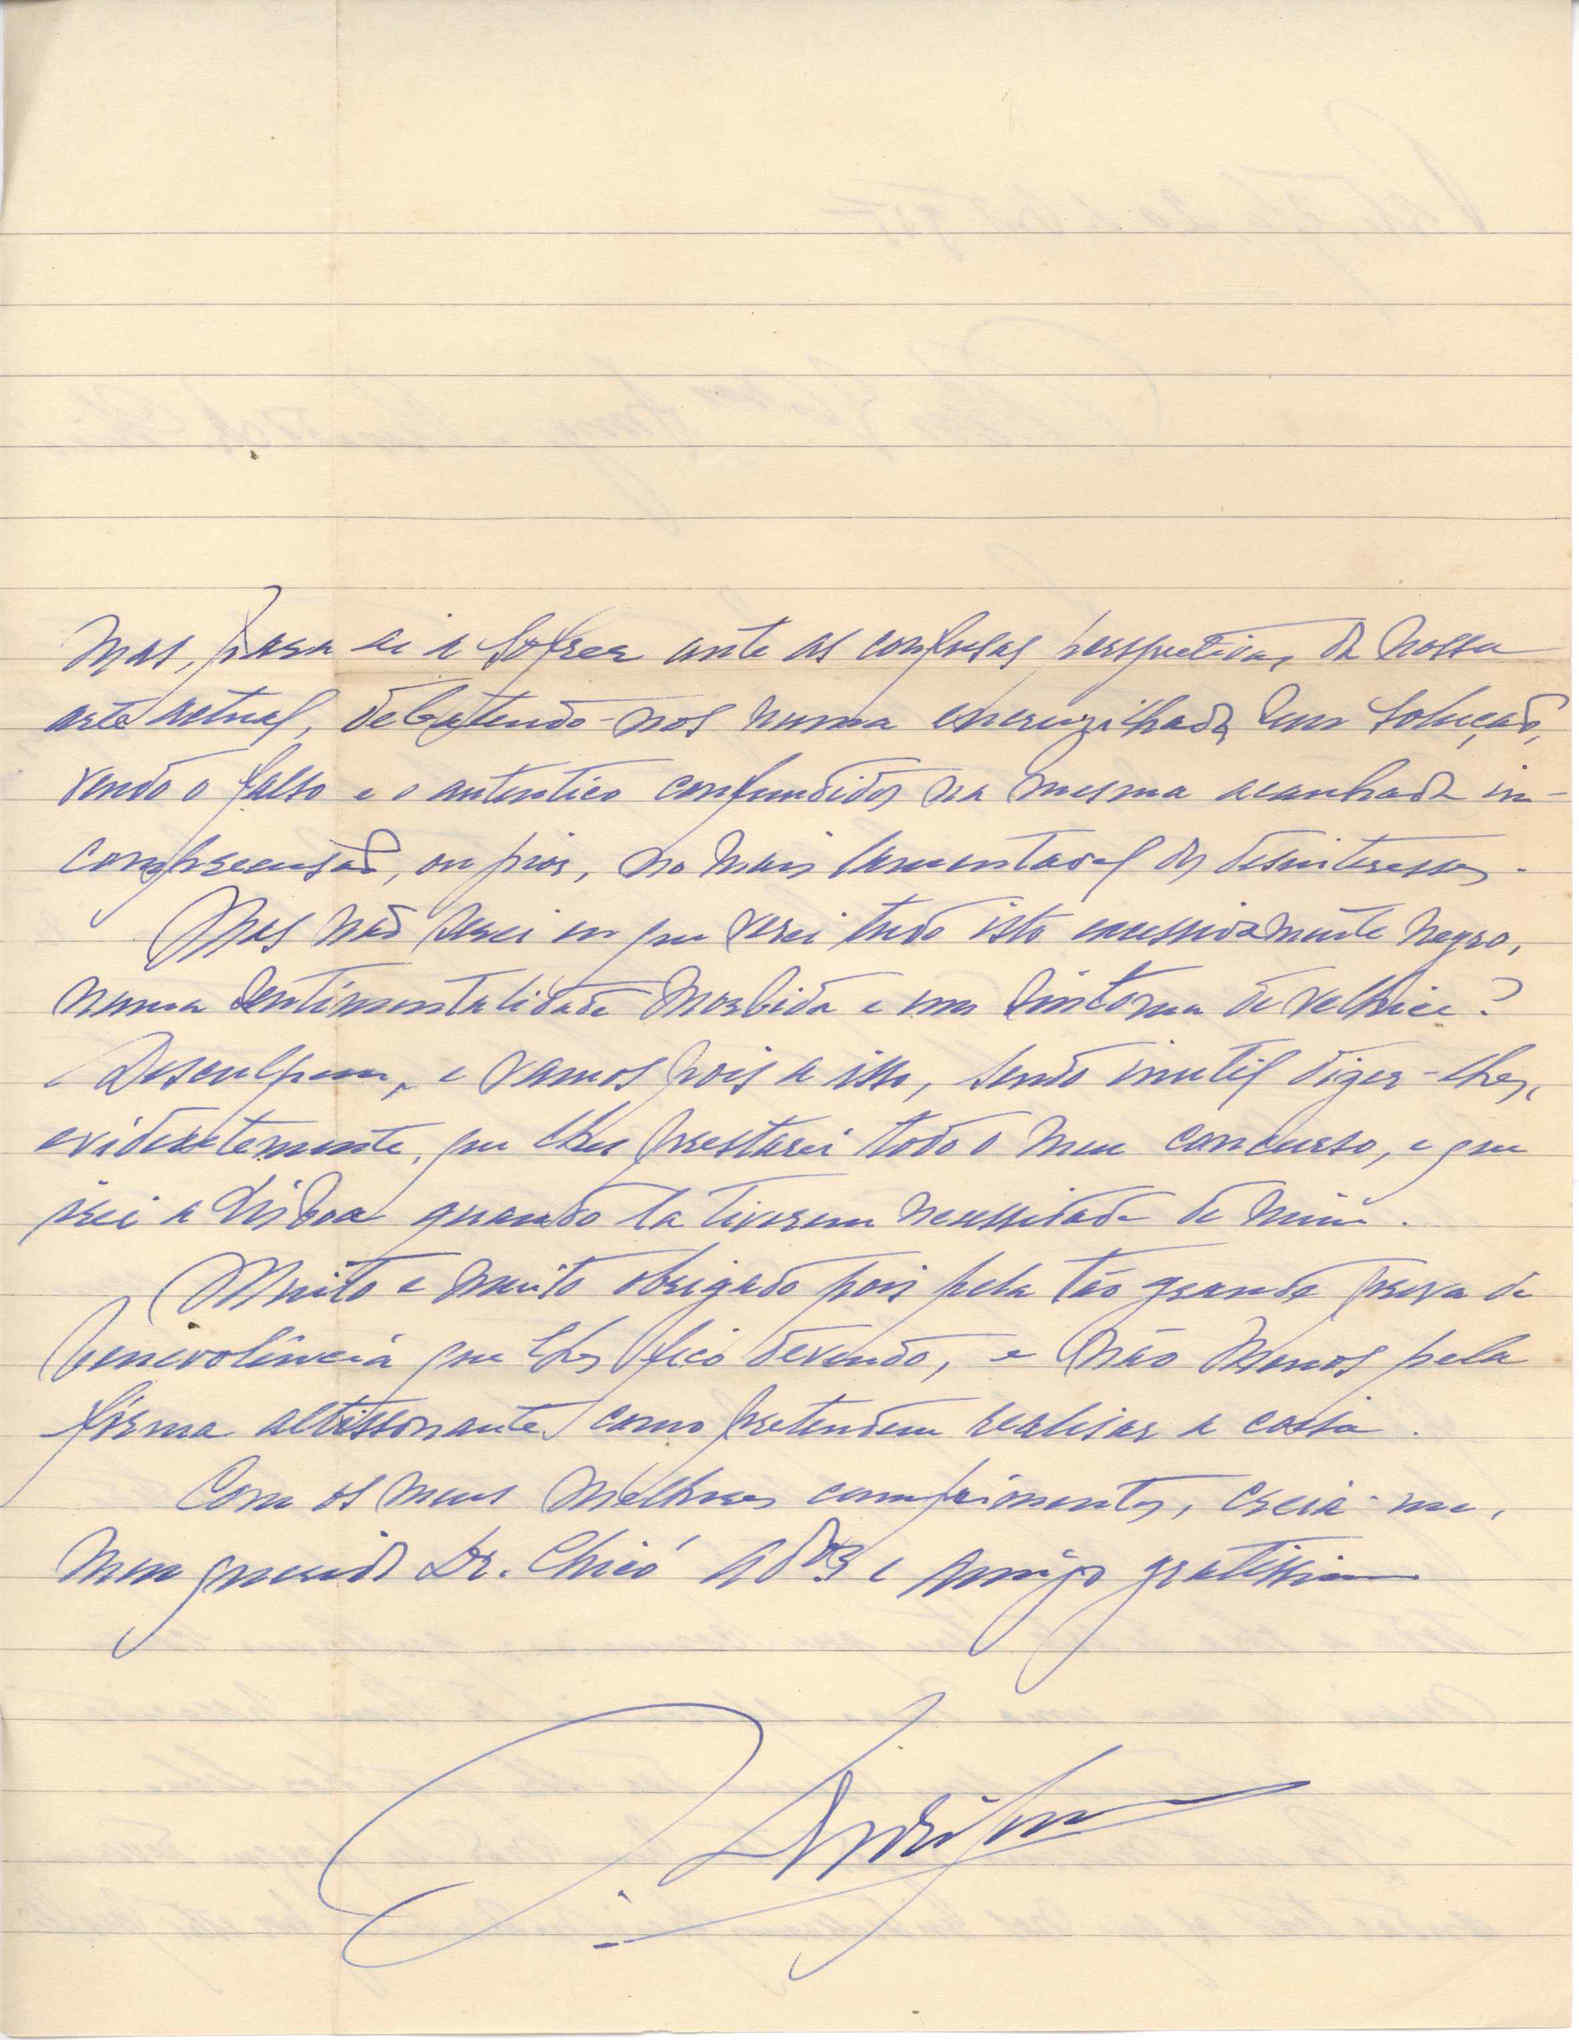 Mas, para aí a sofrer ante as confusas perspectivas da nossa
arte actual, debatendo-nos numa encruzilhada sem solução,
vendo o falso e o autentico confundidos na mesma acanhada in-
compreensão, ou pior, no mais lamentavel dos desinteresses.
Mas não serei eu que verei tudo isto excessivamente negro,
numa sentimentalidade morbida e um sintoma de velhice?
Desculpem, e vamos pois a isso, sendo inutil dizer-lhes,
evidentemente, que lhes prestarei todo o meu concurso, e que
irei a Lisboa quando lá tiverem necessidade de mim.
Muito e muito obrigado pois pela tão grande prova de
benevolência que lhes fico devendo, e não menos pela
fórma altissonante como pretendem realisar a coisa.
Com os meus melhores cumprimentos, creia-me,
meu querido Dr. Chicó adºr e amigo gratissimo